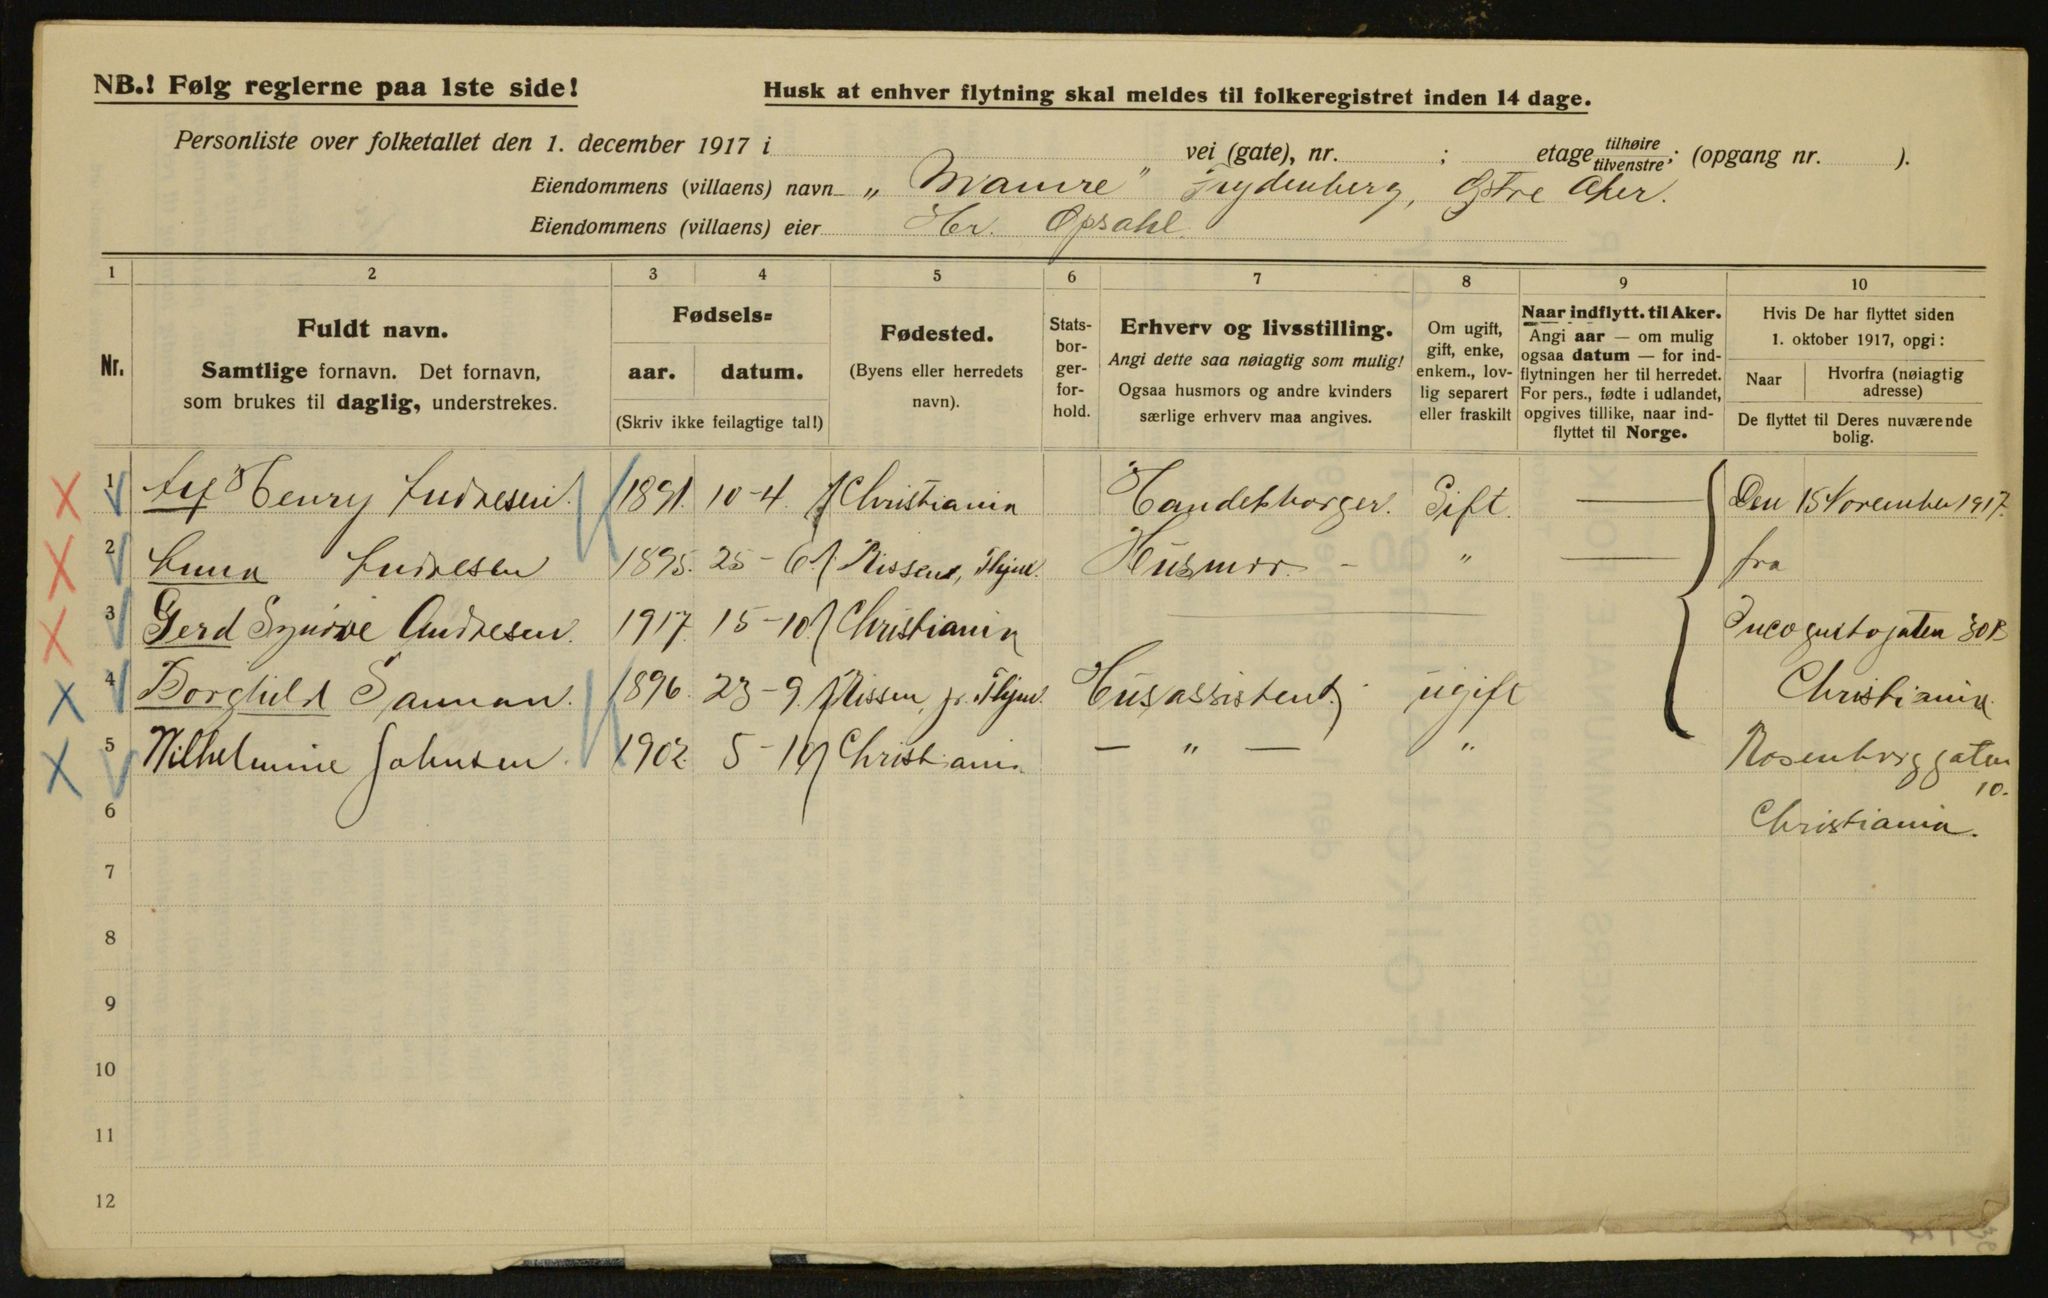 NB.! Følg reglerne paa 1ste side!
Husk at enhver flytning skal meldes til folkeregistret inden 14 dage.
Personliste over folketallet den 1. december 1917 i vei (gate), nr. ; etage tilhøire tilvenstre ; (opgang nr. ).
Eiendommens (villaens) navn „Mamre" Frydenberg, Østre Aker.
Eiendommens (villaens) eier Hr. Opsahl.
1 2 3 4 5 6 7 8 9 10
Nr.
Fuldt navn.
Samtlige fornavn. Det fornavn,
som brukes til daglig, understrekes.
Fødsels-
aar. datum.
(Skriv ikke feilagtige tal!)
Fødested.
(Byens eller herredets
navn).
Stats-
bor-
ger-
for-
hold.
Erhverv og livsstilling.
Angi dette saa nøiagtig som mulig!
Ogsaa husmors og andre kvinders
særlige erhverv maa angives.
Om ugift,
gift, enke,
enkem., lov-
lig separert
eller fraskilt
Naar indflytt. til Aker.
Angi aar — om mulig
ogsaa datum — for ind-
flytningen her til herredet.
For pers., fødte i udlandet,
opgives tillike, naar ind-
flyttet til Norge.
Hvis De har flyttet siden
1. oktober 1917, opgi:
Naar
Hvorfra (nøiagtig
adresse)
De flyttet til Deres nuværende
bolig.
1 Alf Henry Andresen. 1891. 10-4. Christiania Handelsborger. Gift. — Den 15 November 1917.
2 Anna Andresen 1895. 25-6. Rissen, Thjem. Husmor. - " — fra
3 Gerd Synöve Andresen. 1917. 15-10. Christiania — Incognitogaten 30B
4 Borghild Sannan. 1896. 23-9. Rissen, pr. Thjem. Husassistent. ugift Christiania.
5 Wilhelmine Johnsen. 1902. 5-10 Christiania. — " — " Rosenborggaten
10.
6 Christiania.
7
8
9
10
11
12